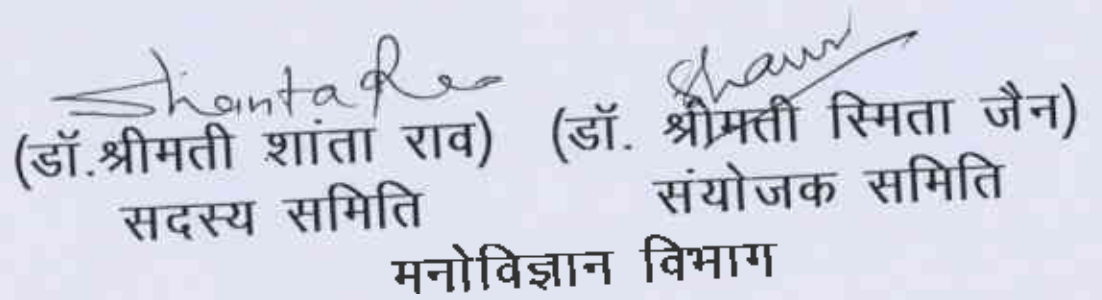 Shanta Rao
(डॉ.श्रीमती शांता राव) (डॉ. श्रीमती स्मिता जैन)
सदस्य समिति संयोजक समिति
मनोविज्ञान विभाग